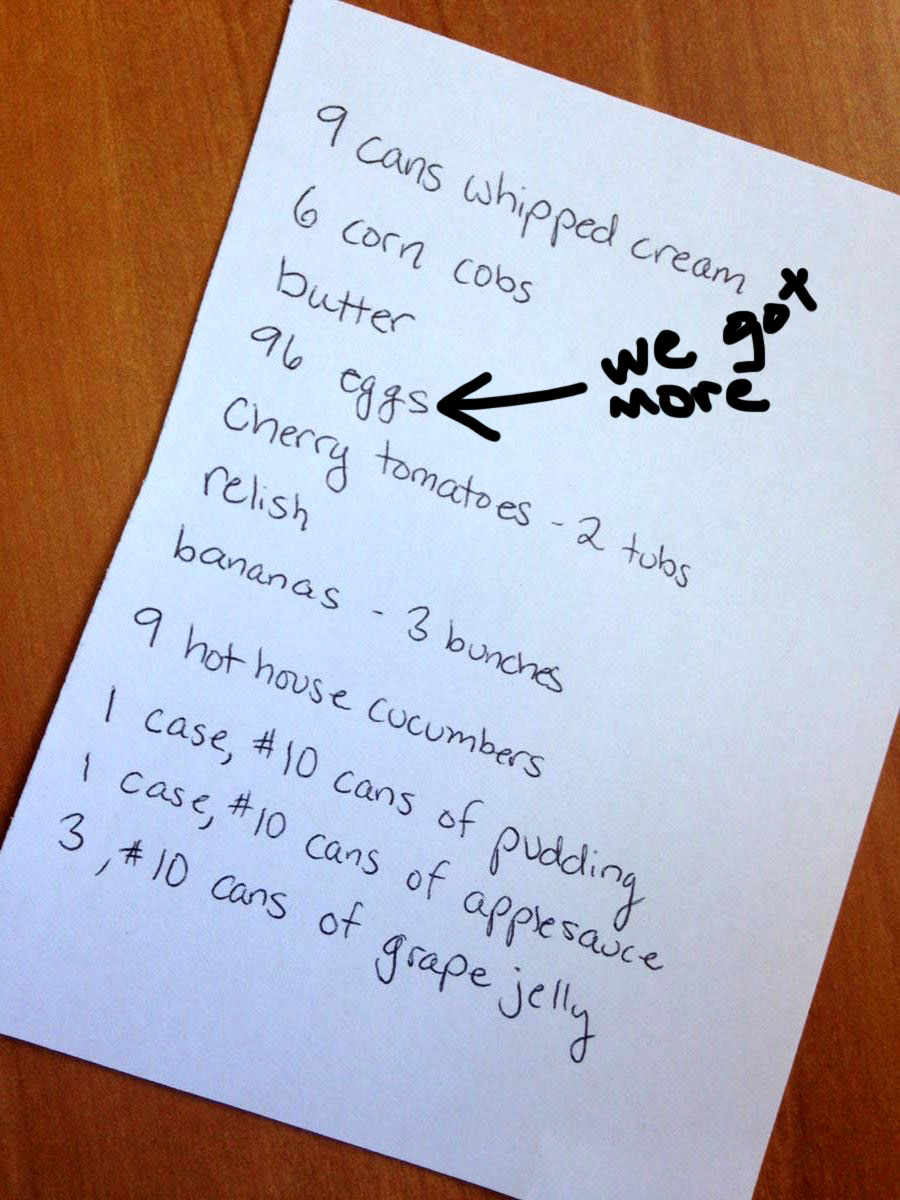 9 cans whipped cream
6 corn cobs
butter
96 eggs
we got
more
Cherry tomatoes - 2 tubs
relish
bananas - 3 bunches
9 hot house cucumbers
1 case, #10 cans of pudding
1 case, #10 cans of applesauce
3, #10 cans of grape jelly